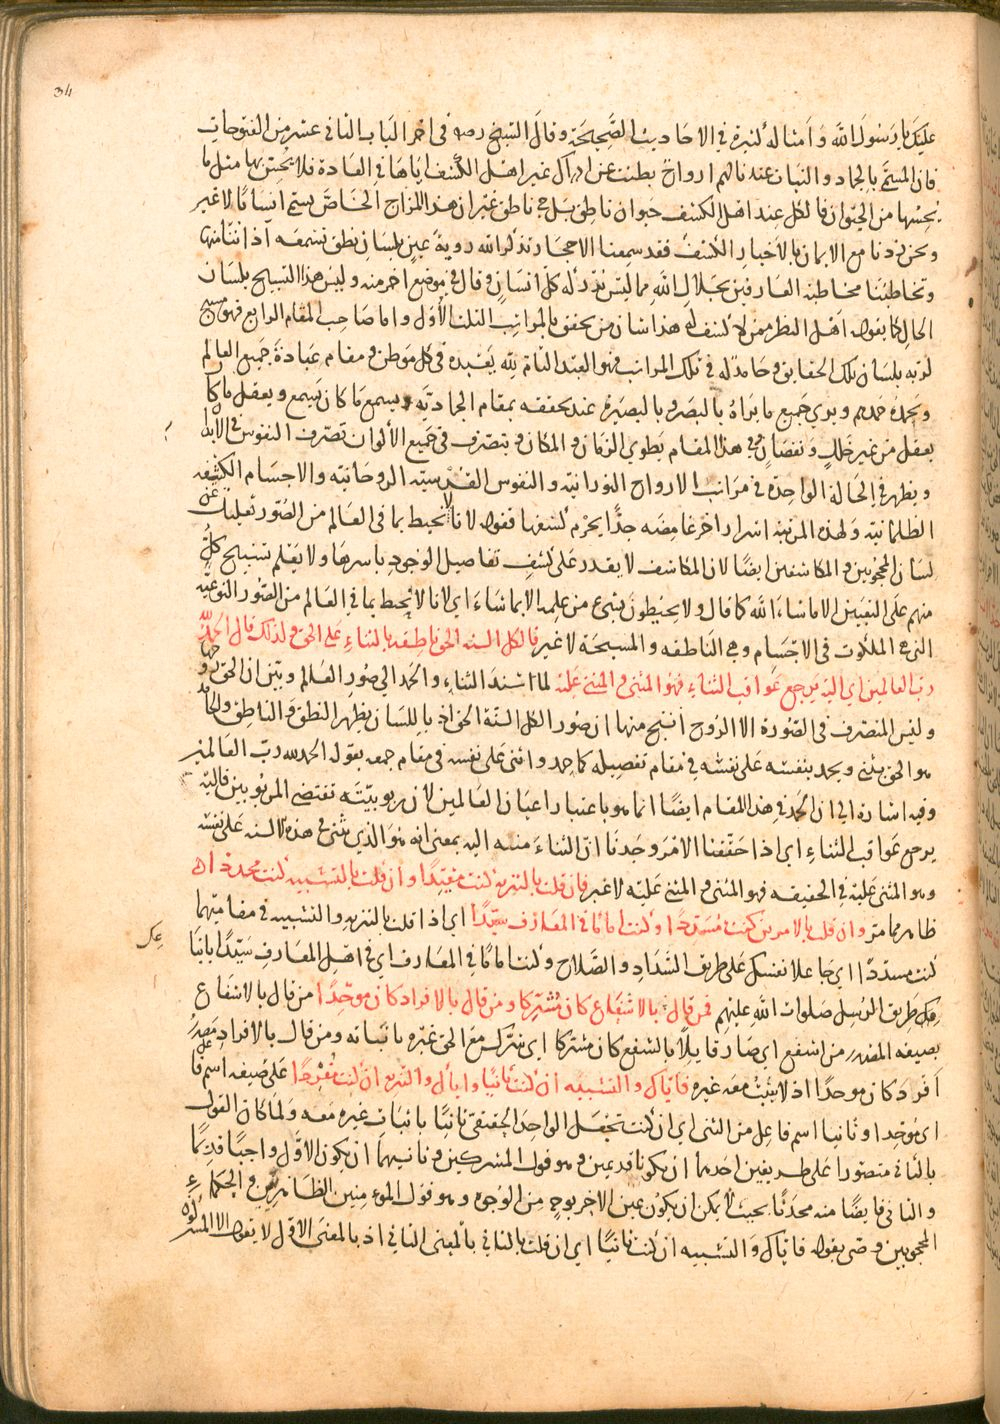 34
عليك يا رسول الله وامثاله كثيرة في الاحاديث الصحيحة وقال الشيخ رضه في اخر الباب الثاني عشر من الفتوحات
فان المسمى بالجماد والنبات عندنا لهم ارواح بطنت عن ادراك غير اهل الكشف اياها في العادة فلا يحس بها مثل ما
يحسها من الحيوان فالكل عند اهل الكشف حيوان ناطق بل حي ناطق غير ان هذا المزاج الخاص يسمى انسانا لا غير
ونحن زدنا مع الايمان بالاخبار الكشف فقد سمعنا الاحجار تذكر الله روية عين بلسان نطق تسمعه آذاننا منها
وتخاطبنا مخاطبة العارفين بجلال الله مما ليس يدركه كل انسان وقال في موضع اخر منه وليس هذا التسبيح بلسان
الحال كما يقوله اهل النظر ممن لا كشف له هذا شان من تحقق بالمراتب الثلث الأول واما صاحب المقام الرابع فهو مسبح
لربه بلسان تلك الحقايق وحامد له في تلك المراتب فهو العبد التام لله يعبده في كل موطن ومقام عبادة جميع العالم
ويحمده حمدهم ويرى جميع ما يراه بالبصر وبالبصيرة عند تحققه بمقام الجمادية ويسمع ما كان يسمع ويعقل ما كا
يعقل من غير خلل ونقصان وفي هذا المقام يطوي الزمان والمكان ويتصرف في جميع الألوان تصرف النفوس في الابدا
ويظهر في الحالة الواحدة في مراتب الارواح النورانية والنفوس القدسية الروحانية والاجسام الكثيفه
الظلمانية ولهذه المرتبة اسرار اخر غامضه جدا يحرم كشفها فقوله لانا لا نحيط بما في العالم من الصور تعليل عن
لسان المحجوبين والمكاشفين ايضا لان المكاشف لا يقدر على كشف تفاصيل الوجود باسرها ولا يعلم تسبيح كل
منهم على التعيين الا ماشاء الله كما قال ولا يحيطون بشيء من علمه الا بما شاء اي لانا لا نحيط بما في العالم من الصور النوعية
التي هي الملكوت في الاجسام وهي الناطقه والمسبحة لا غير فالكل السنه الحق ناطقه بالثناء على الحق ولذلك قال الحمد لله
رب العالمين اي اليه يرجع عواقب الثناء فهو المثنى والمثنى عليه لما اسند الثناء والحمد الى صور العالم وبين ان الحق روحها
وليس المتصرف في الصورة الا الروح انتج منها ان صور الكل السنة الحق اذ باللسان يظهر النطق والناطق والحامد
هو الحق يثنى ويحمد بنفسه على نفسه في مقام تفصيله كما حمد واثنى على نفسه في مقام جمعه بقوله الحمد لله رب العالمين
وفيه اشارة الى ان الحمد في هذا المقام ايضا انما هو باعتبار اعيان العالمين لان ربوبيته تقتضي المربوبين فاليه
يرجع عواقب الثناء اي اذا حققنا الامر وجدنا ان الثناء منه اليه بمعنى انه هو الذي يثنى في هذه الالسنه على نفسه
وهو المثنى عليه في الحقيقه فهو المثنى والمثنى عليه لا غير فان قلت بالتنزيه كنت مقيدا وان قلت بالتشبيه كنت محددا
ظاهر مما مر وان قلت بالامرين كنت مسددا وكنت اماما في المعارف سيدا اي اذا قلت بالتنزيه والتشبيه في مقاميهما
كنت مسددا اي جاعلا نفسك على طريق السداد والصلاح وكنت اماما في المعارف اي في اهل المعارف سيدا باتباعك
طريق الرسل صلوات الله عليهم فمن قال بالاشفاع كان مشركا ومن قال بالافراد كان موحدا من قال بالاشفاع
بصيغه المصدر من اشفع اي صار قايلا بالشفع كان مشركا اي شرك مع الحق غيره باثباته ومن قال بالافراد مصدر
افرد كان موحدا اذ لا يثبت معه غيره فاياك والتشبيه ان كنت ثانيا واياك والتنزيه ان كنت مفردا على صيغه اسم فا
اي موحدا وثانيا اسم فاعل من الثني اي ان كنت تجعل الواحد الحقيقي ثانيا باثبات غيره معه ولما كان القول
بالثاني متصورا على طريقين احدهما ان يكونا قديمين وهو قول المشركين وثانيهما ان يكون الاول واجبا قديما
والثاني فايضا منه محدثا بحيث لا يمكن ان يكون عين الاخر بوجه من الوجوه وهو قول المومنين الظاهريين والحكماء
المحجوبين وصى بقوله فاياك والتشبيه ان كنت ثانيا اي ان قلت بالثاني بالمعنى الثاني اذ بالمعنى الاول لا يقول الا المشرك